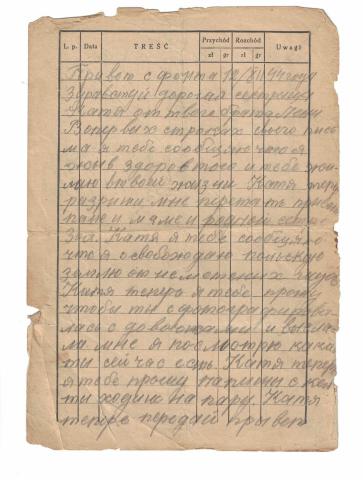 L. p. Data TREŚĆ Przychód Rozchód Uwagi
zł gr zł gr
Привет с фронта 12/XII 44 года
Здравствуй дорогая сестрица
Катя от твого брата
Вопервых строках свого пись
ма я тебе сообщаю что я
жыв здоров того и тебе жи
лаю в твоей жизни Катя тепер
разришы мне передать привет
папе и маме и родной сестре
Катя я тебе сообщаю
что я освобождаю польскую
землю от немецких гадов
Катя теперь я тебе прошу
чтобы ты сфотографирова
лась с девочками и выс
ла мне я посмотрю кака
ты сейчас есть Катя теперь
я тебе прошу напишы с кем
ты ходиш на пару. Катя
теперь передай привет